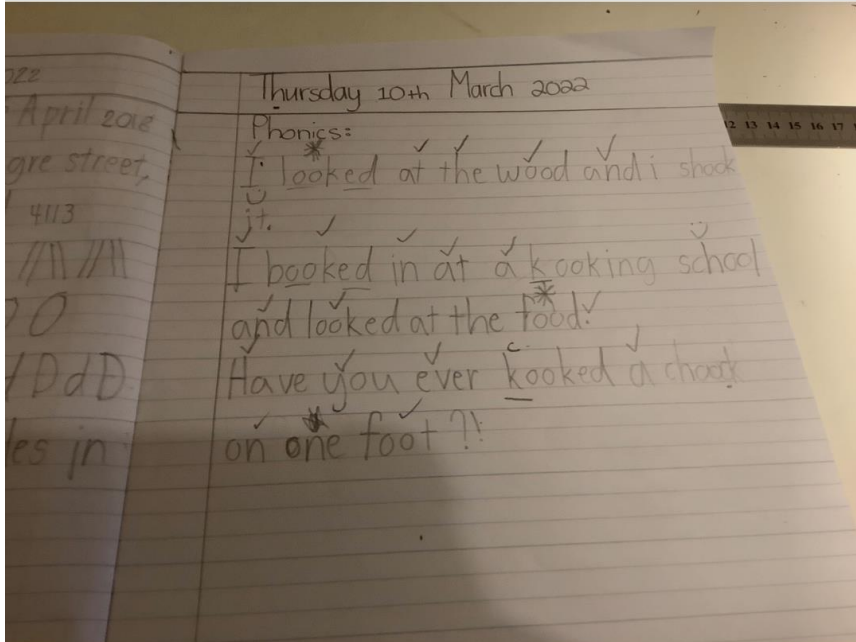 022
April 2018
gre street,
4113
O
DdD
les in
Thursday 10th March 2022
Phonics:
I looked at the wood and i shook
it.
I booked in at a kooking school
and looked at the food.
c
Have you ever kooked a chook
on one foot?!
12 13 14 15 16 17